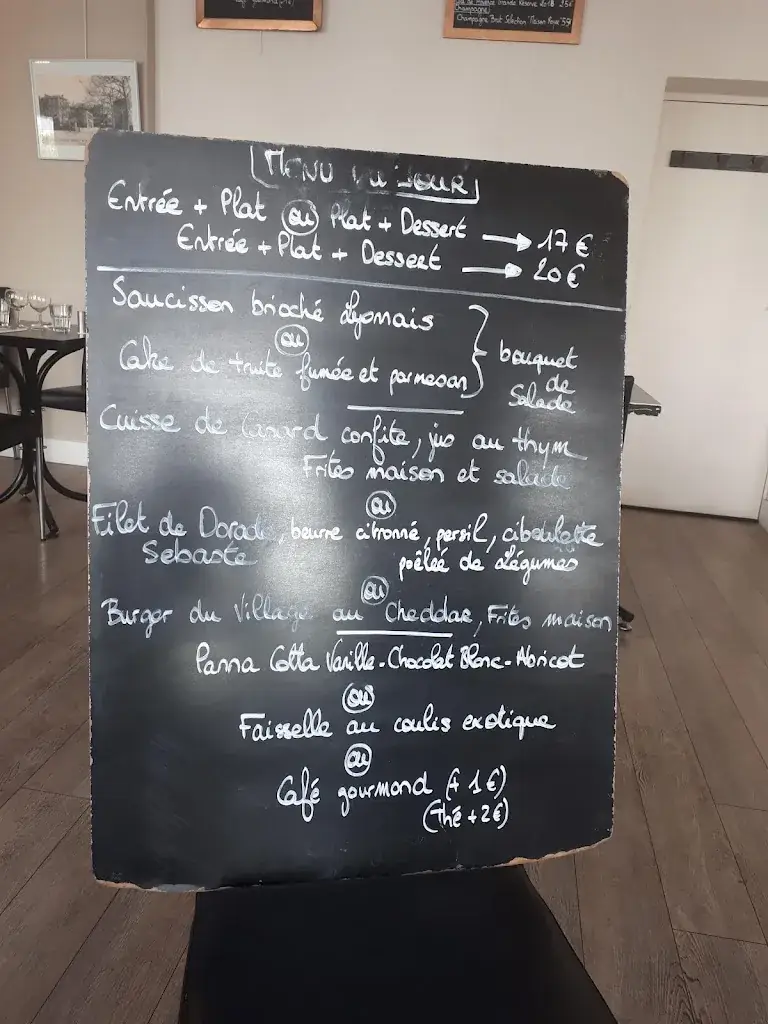 Champagne
Champagne Brut Selection "Maison Royer" 35€
MENU du JOUR
Entrée + Plat ou Plat + Dessert → 17 €
Entrée + Plat + Dessert → 20 €
Saucisson brioché Lyonnais
ou
Cake de truite fumée et parmesan
bouquet
de
Salade
Cuisse de Canard confite, jus au thym
Frites maison et salade
ou
Filet de Dorade, beurre citronné, persil, ciboulette
Sebaste
poêlée de Légumes
ou
Burger du Village au Cheddar, Frites maison
Panna Cotta Vanille - Chocolat Blanc - Abricot
ou
Faisselle au coulis exotique
ou
Café gourmand (+ 1€)
(thé + 2€)